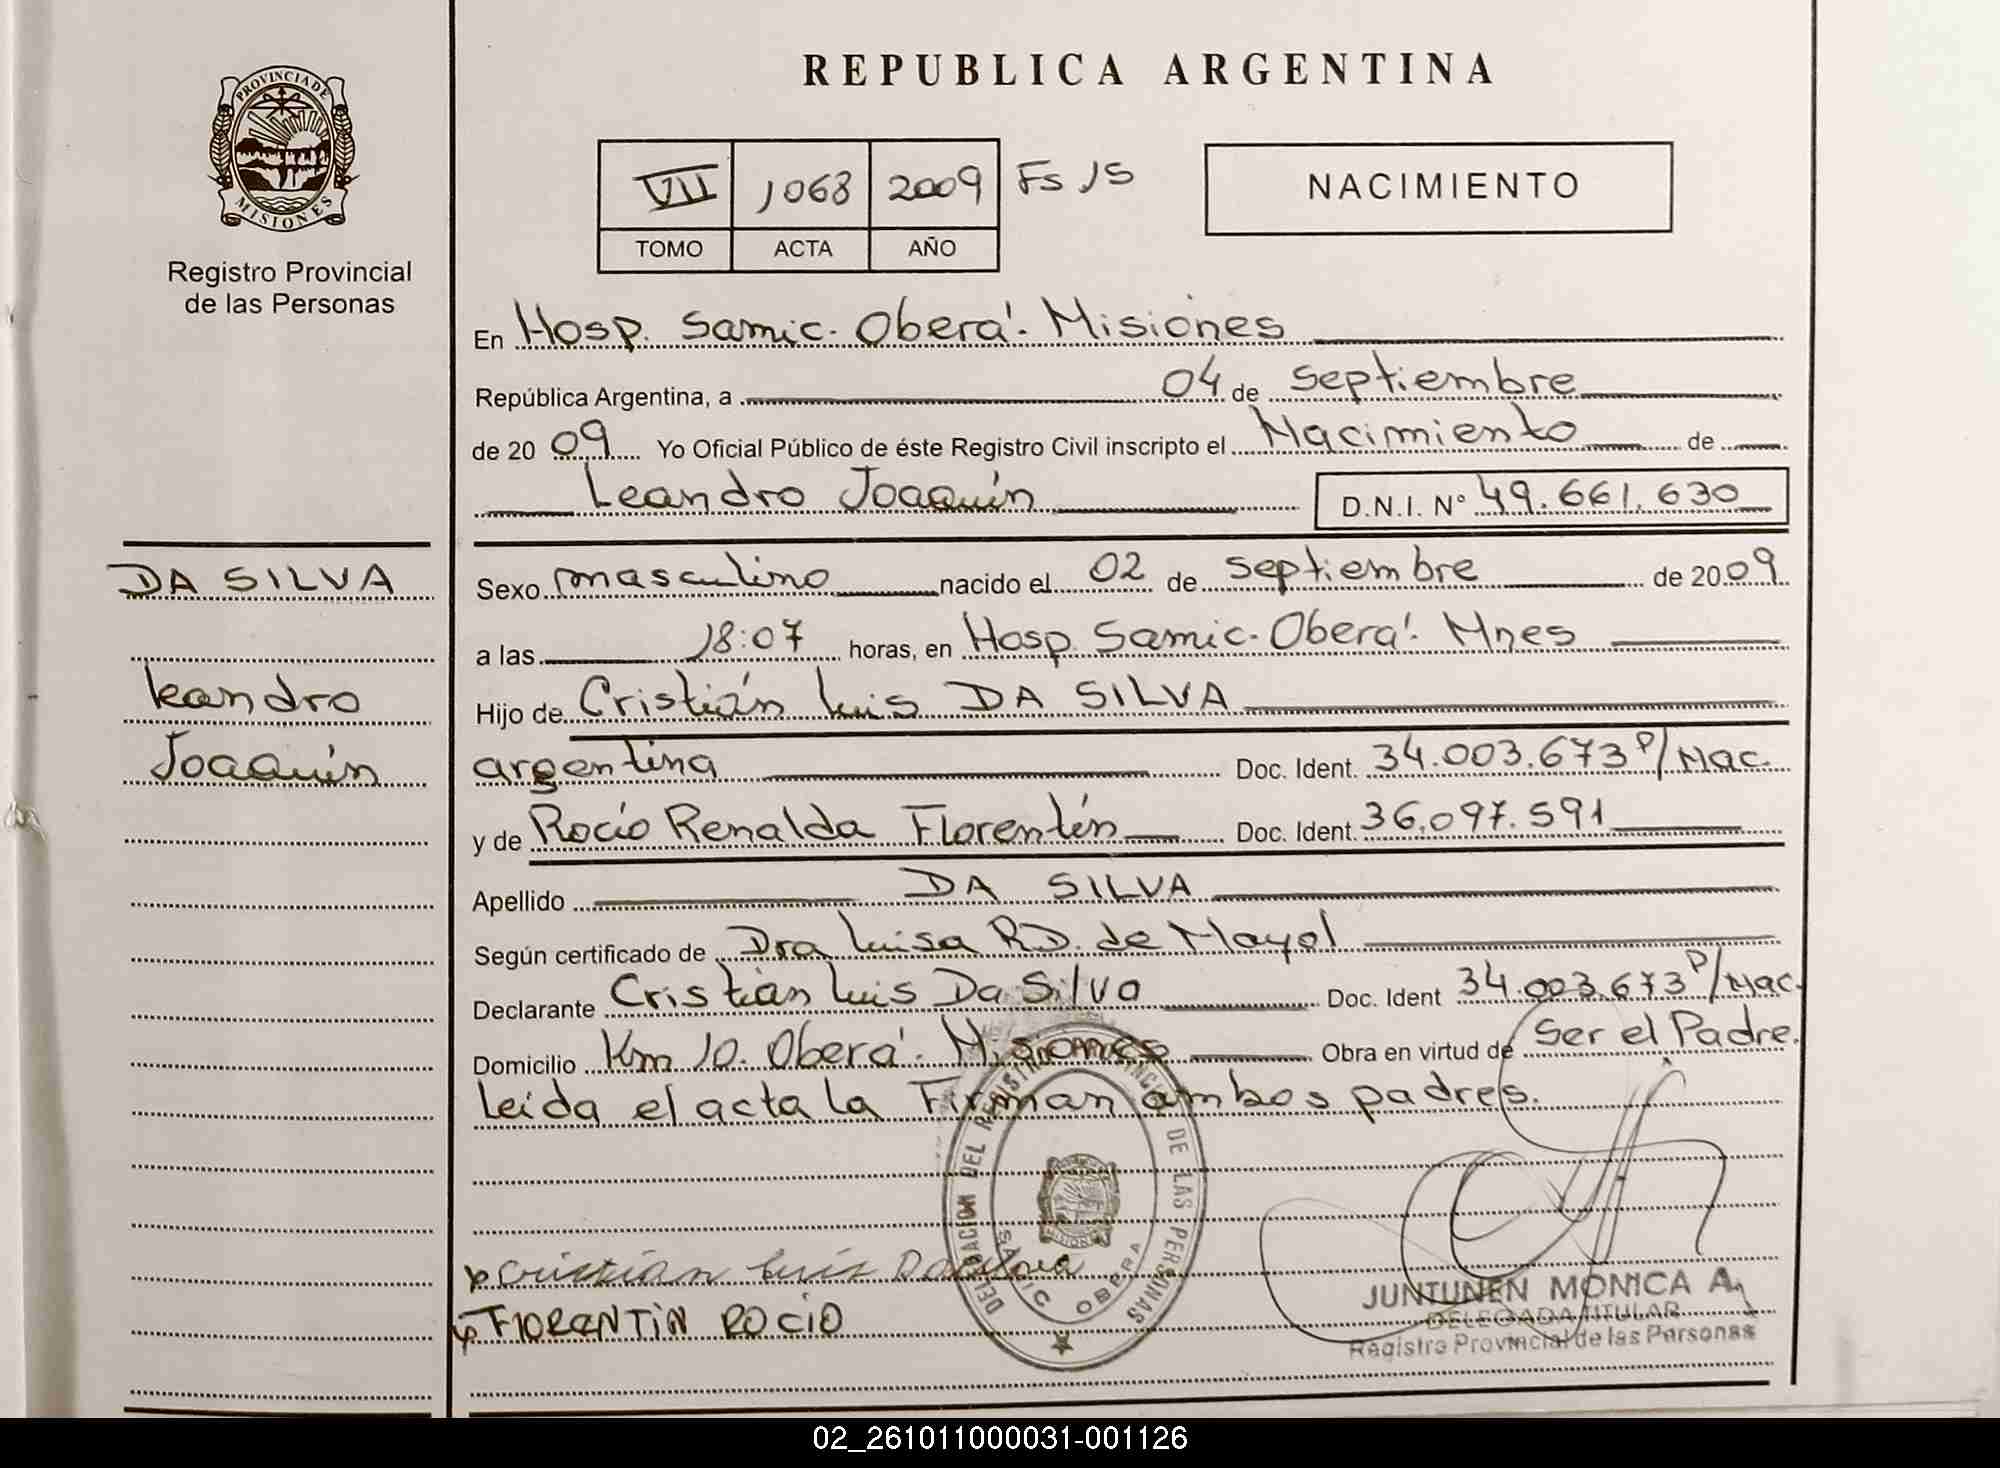 PROVINCIA DE
MISIONES
Registro Provincial
de las Personas
REPUBLICA ARGENTINA
VII 1068 2009 Fs 15
TOMO ACTA AÑO
NACIMIENTO
En Hosp. Samic. Oberá. Misiones
República Argentina, a 04 de Septiembre
de 20 09 Yo Oficial Público de éste Registro Civil inscripto el Nacimiento de
Leandro Joaquín D.N.I. Nº 49.661.630
DA SILVA
Leandro
Joaquín
Sexo masculino nacido el 02 de Septiembre de 2009
a las 18:07 horas, en Hosp. Samic. Oberá. Mnes
Hijo de Cristián Luis DA SILVA
argentina Doc. Ident. 34.003.673 P/Nac.
y de Rocío Renalda Florentín Doc. Ident. 36.097.591
Apellido DA SILVA
Según certificado de Dra Luisa R.D. de Mayol
Declarante Cristián Luis Da Silva Doc. Ident 34.003.673 P/Nac.
Domicilio Km 10. Oberá. Misiones Obra en virtud de Ser el Padre.
Leída el acta la Firman ambos padres.
DELEGACION DEL REGISTRO PROVINCIAL DE LAS PERSONAS
SAMIC OBERA
MISIONES
Cristián Luis Da Silva
FlORENTiN ROCiO
JUNTUNEN MONICA A.
DELEGADA TITULAR
Registro Provincial de las Personas
02_261011000031-001126